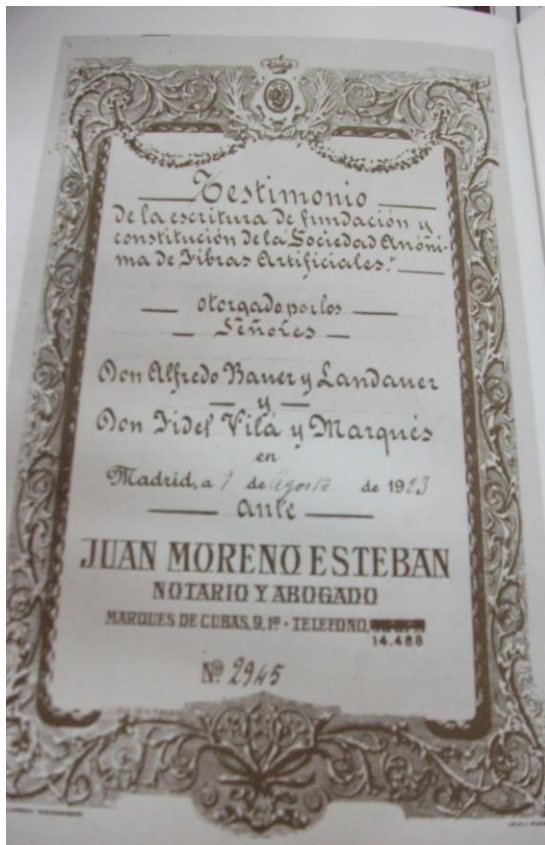 Testimonio
de la escritura de fundación y
constitución de la "Sociedad Anóni-
ma de Fibras Artificiales."
otorgado por los
Señores
Don Alfredo Bauer y Landauer
y
Don Fidel Vilá y Marqués
en
Madrid, a 9 de Agosto de 1923
ante
JUAN MORENO ESTEBAN
NOTARIO Y ABOGADO
MARQUES DE CUBAS, 9, 1º - TELEFONO,
14.488
Nº 2945